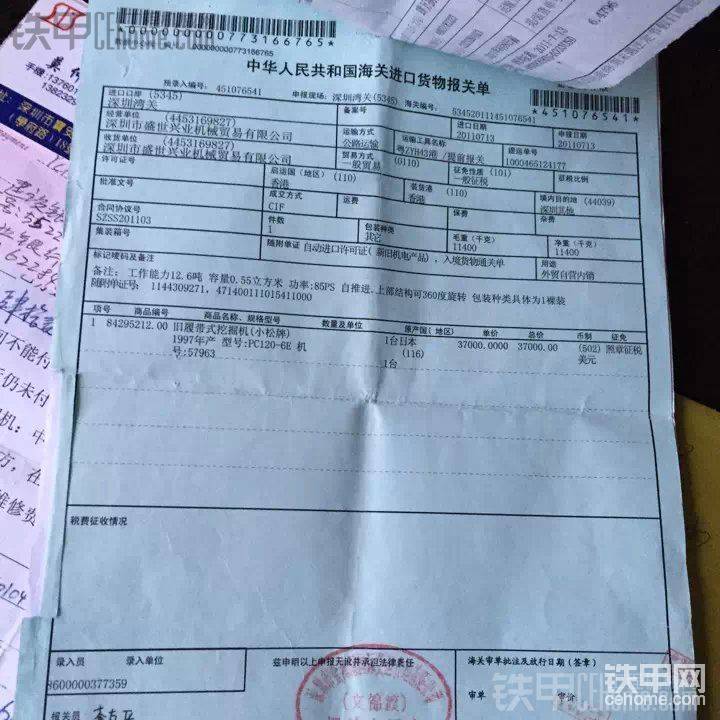 铁甲CEhome.com
*000000000773166765*
000000000773166765
中华人民共和国海关进口货物报关单
*451076541*
预录入编号: 451076541 申报现场: 深圳湾关(5345) 海关编号: 534520111451076541
进口口岸 (5345) 备案号 进口日期 申报日期
深圳湾关 20110713 20110713
经营单位 (4453169827) 运输方式 运输工具名称 提运单号
深圳市盛世兴业机械贸易有限公司 公路运输 粤ZYH43港 /提前报关 1000465124177
收货单位 (4453169827) 贸易方式 (0110) 征免性质 (101) 征税比例
深圳市盛世兴业机械贸易有限公司 一般贸易 一般征税
许可证号 启运国(地区) (110) 装货港 (110) 境内目的地 (44039)
香港 香港 深圳其他
批准文号 成交方式 运费 保费 杂费
CIF
合同协议号 件数 包装种类 毛重(千克) 净重(千克)
SZSS201103 1 其它 11400 11400
集装箱号 随附单证 自动进口许可证(新旧机电产品), 入境货物通关单 用途
外贸自营内销
标记唛码及备注
备注: 工作能力12.6吨 容量0.55立方米 功率:85PS 自推进、上部结构可360度旋转 包装种类具体为1裸装
随附单证号: 1144309271, 471400111015411000
项号 商品编号 商品名称、规格型号 数量及单位 原产国(地区) 单价 总价 币制 征免
1 84295212.00 旧履带式挖掘机(小松牌) 1台 日本 37000.0000 37000.00 (502) 照章征税
1997年产 型号:PC120-6E 机 (116) 美元
号:57963 1台
税费征收情况
录入员 录入单位 兹申明以上申报无讹并承担法律责任 海关审单批注及放行日期(签章)
8600000377359
审单 审价
报关员
(文锦渡)
铁甲网
铁甲CEhome.com